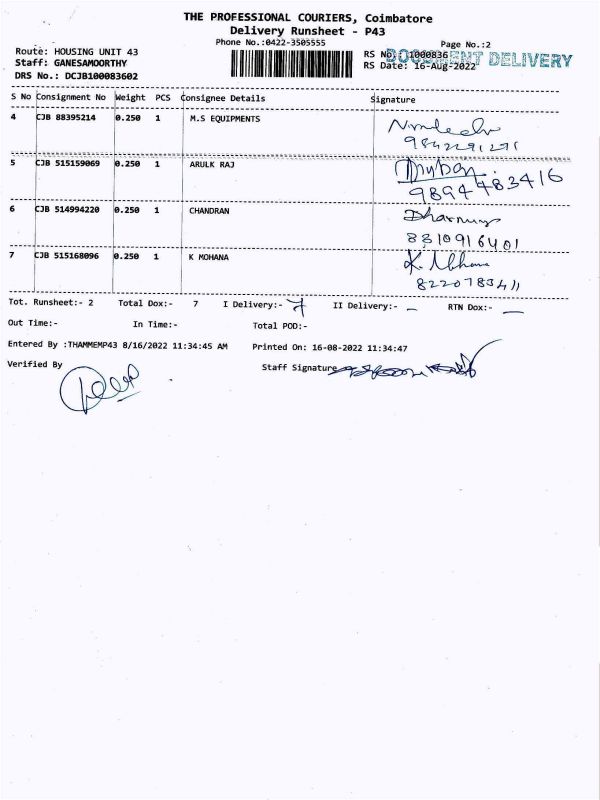 THE PROFESSIONAL COURIERS, Coimbatore
Delivery Runsheet - P43
Phone No.:0422-3505555
Page No.:2
Route: HOUSING UNIT 43
RS No.: 1000836
DOCUMENT DELIVERY
Staff: GANESAMOORTHY
RS Date: 16-Aug-2022
DRS No.: DCJB100083602
S No Consignment No Weight PCS Consignee Details Signature
4 CJB 88395214 0.250 1 M.S EQUIPMENTS
9842291291
5 CJB 515159069 0.250 1 ARULK RAJ
9894483416
6 CJB 514994220 0.250 1 CHANDRAN
8310916401
7 CJB 515168096 0.250 1 K MOHANA K. Mohana
8220783411
Tot. Runsheet:- 2 Total Dox:- 7 I Delivery:- 7 II Delivery:- – RTN Dox:- –
Out Time:- In Time:- Total POD:-
Entered By :THAMMEMP43 8/16/2022 11:34:45 AM Printed On: 16-08-2022 11:34:47
Verified By Staff Signature